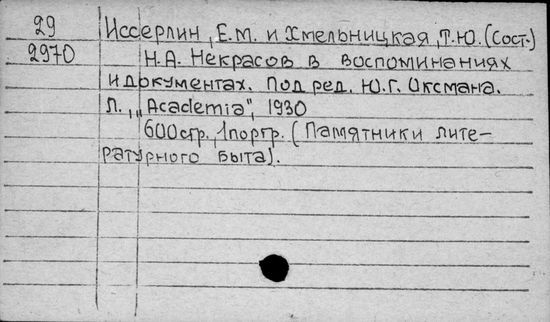 29 Иссерлин, Е.М. и Хмельницкая, Т.Ю. (Сост.)
2970 Н.А. Некрасов в воспоминаниях
и документах. Под ред. Ю.Г. Оксмана.
Л., „Academia", 1930
600стр., 1портр. (Памятники лите-
ратурного быта).